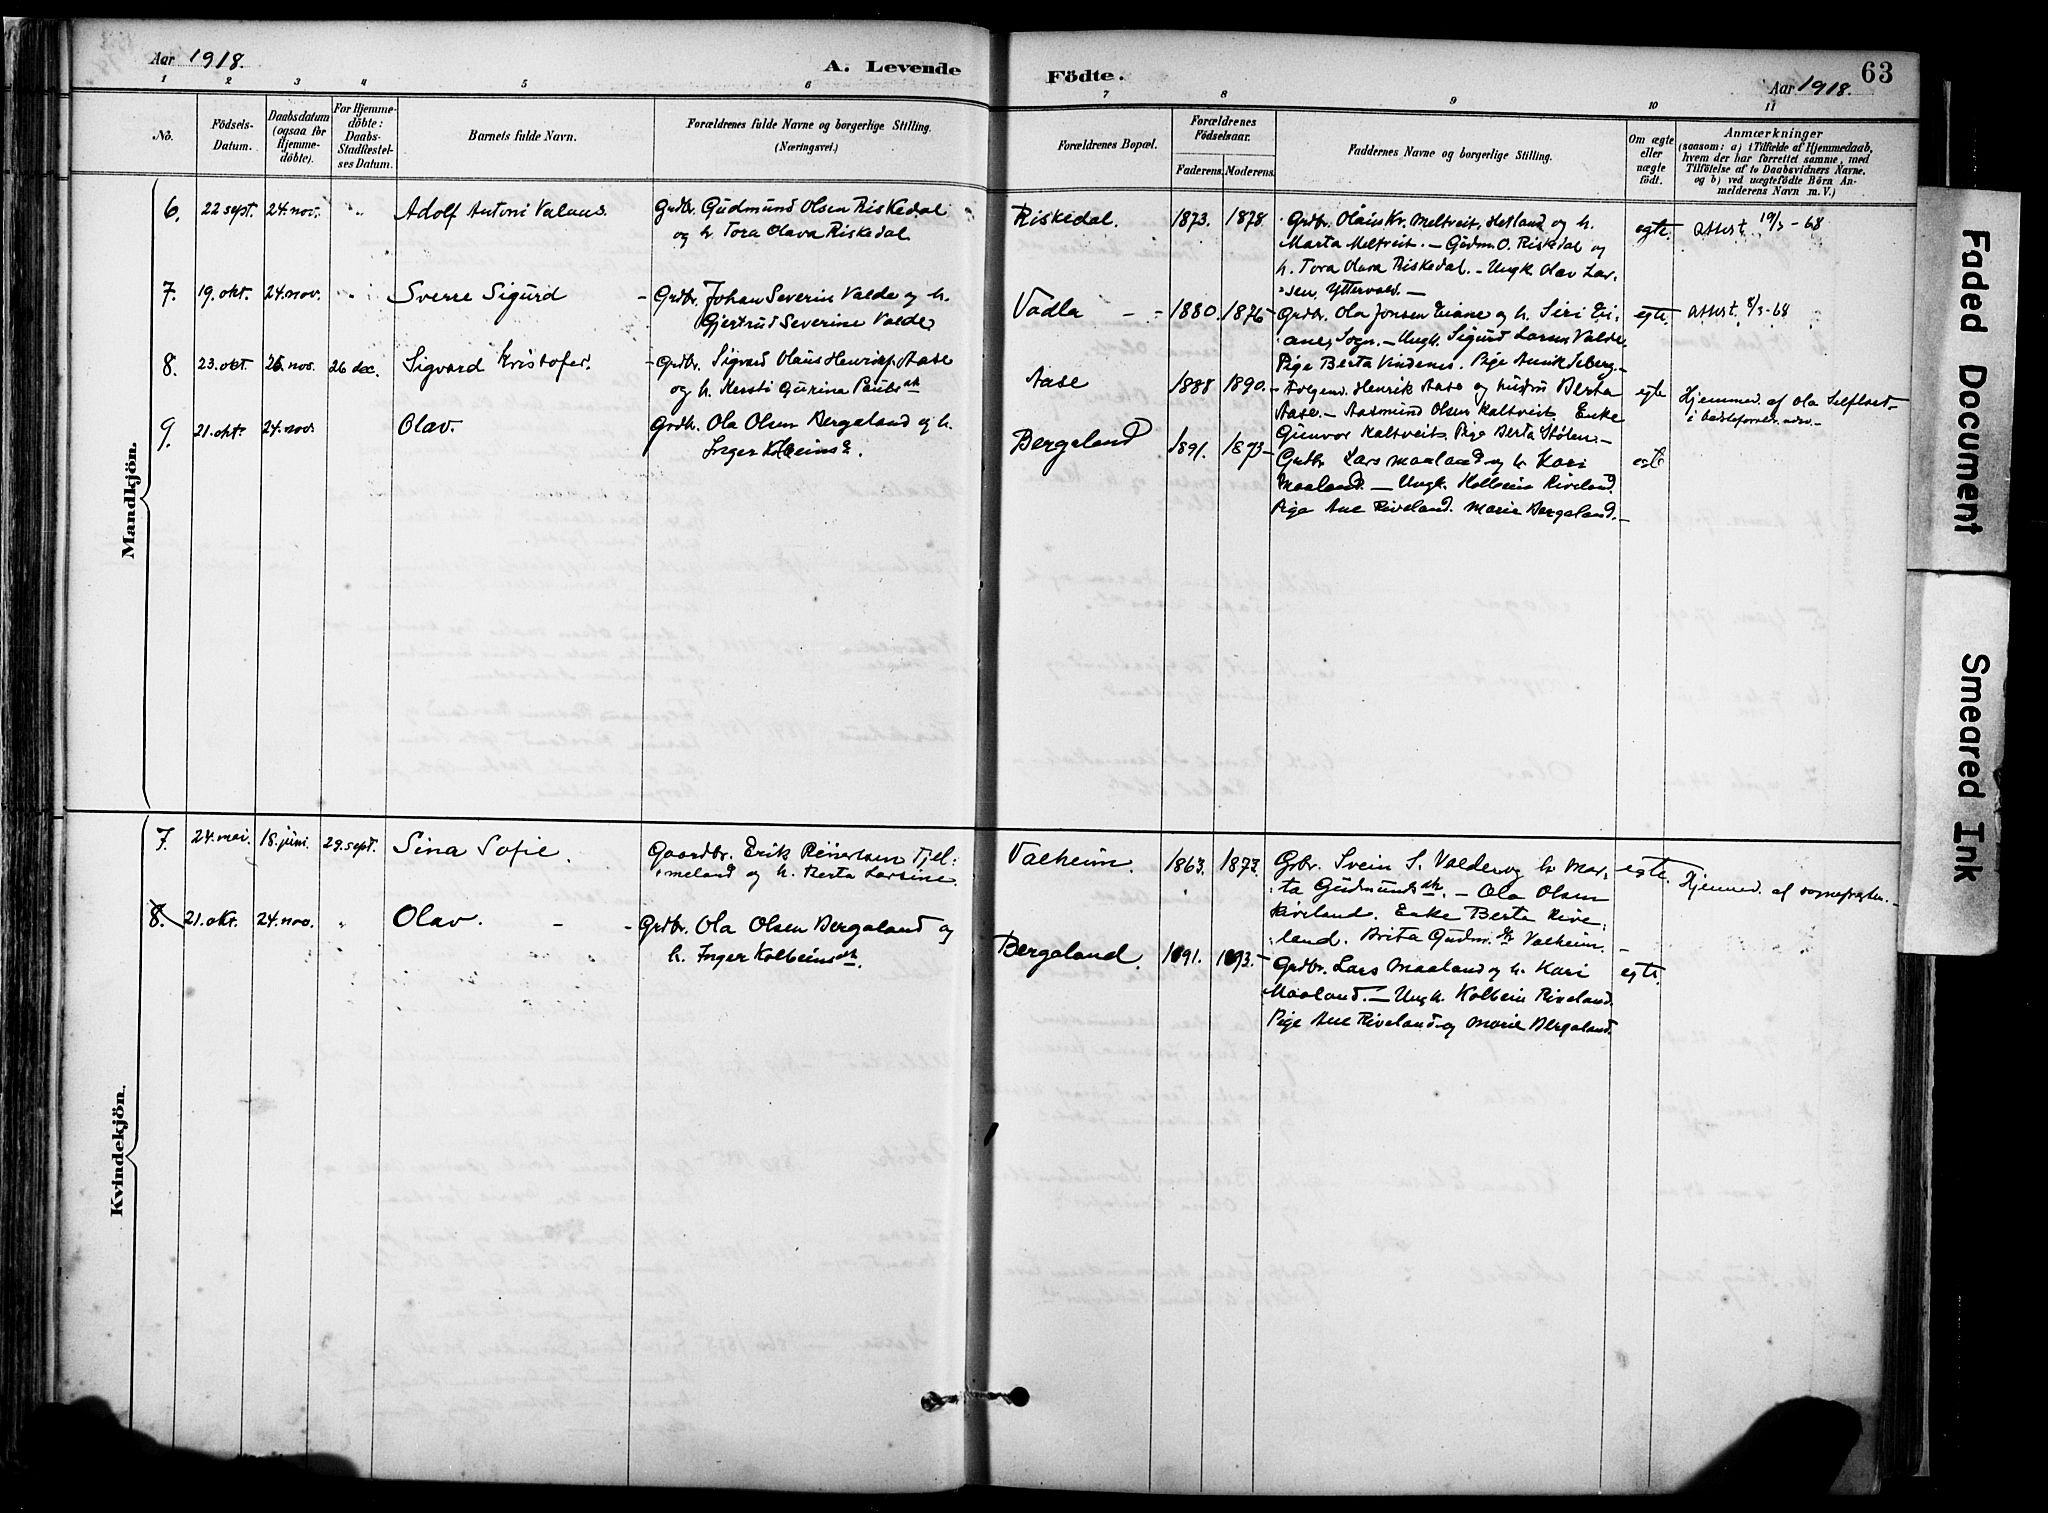 Aar 1918.
A. Levende
Födte.
Aar 1918.
63
1 2 3 4 5 6 7 8 9 10 11
No.
Födsels-
Datum.
Daabsdatum
(ogsaa for
Hjemme-
döbte).
For Hjemme-
döbte:
Daabs-
Stadfestel-
ses Datum.
Barnets fulde Navn.
Forældrenes fulde Navne og borgerlige Stilling.
(Næringsvei.)
Forældrenes Bopæl.
Forældrenes
Födselsaar.
Faderens. Moderens.
Faddernes Navne og borgerlige Stilling.
Om ægte
eller
uægte
födt.
Anmærkninger
(saasom: a) i Tilfælde af Hjemmedaab,
hvem der har forrettet samme, med
Tilföielse af to Daabsvidners Navne,
og b) ved uægtefödte Börn An-
melderens Navn m. V.)
Mandkjön.
6. 22 sept. 24. nov. Adolf Antoni
Grdbr. Gudmund Olsen Riskedal
og h. Tora Olava Riskedal
Riskedal. 1873. 1878.
Grdbr. Olaus Kr. Meltveit, Hetland og h.
Marta Meltveit. – Gudm. O. Riskedal og
h. Tora Olava Riskedal. – Ungk. Olav Lar-
sen, Yttervold. –
egte. attest. 19/3 - 68
7. 19. okt. 24. nov. Sverre Sigurd
Grdbr. Johan Severin Valde og h.
Gjertrud Severine Valde
Vadla 1880. 1876
Grdbr. Ola Jonsen Eiane og h. Siri Ei-
ane, Sogn. – Ungk. Sigurd Larsen Valde
Pige Berta Vindenes. Pige
egte. attest. 8/3 - 68
8. 23. okt. 26. nov. 26 dec. Sigvard Kristofer.
Grdbr. Sigvard Olaus Henriks. Aase
og h. Kersti Gurina Paulsdt
Aase 1888 1890.
Henrik Aase og hustru Berta
Aase. – Aasmund Olsen Kaltveit. Enke
Gunvor Kaltveit. Pige Berta Stölen. –
egte Hjemmed. af Ola
9. 21. okt. 24. nov. Olav.
Grdb. Ola Olsen Bergaland og h.
Inger
Bergaland 1891. 1893
Grdbr. Lars Maaland og h. Kari
Maaland. – Ungk. Kolbein Riveland.
Pige Ane Riveland. Marie Bergaland. –
egte
Kvindekjön.
7. 24. mai. 18. juni. 29. sept. Sina Sofie.
Gaardbr. Erik Reiertsen Tjel-
meland og h. Berta Larsine.
Valheim. 1863. 1873.
Grbr. Svein S. Valde og h. Mar-
ta Gudmundsdt. – Ola Olsen
Riveland. Enke Berta Rive-
land. Brita Gudm.dt Valheim. –
egte. Hjemmed. af sognepresten. –
8. 21. okt. 24. nov. Olav.
Grdbr. Ola Olsen Bergaland og
h. Inger Kolbeinsdt.
Bergaland. 1891. 1893.
Grdbr. Lars Maaland og h. Kari
Maaland. – Ungk. Kolbein Riveland.
Pige Ane Riveland og Marie Bergaland.
egte.
Faded Document
Smeared Ink